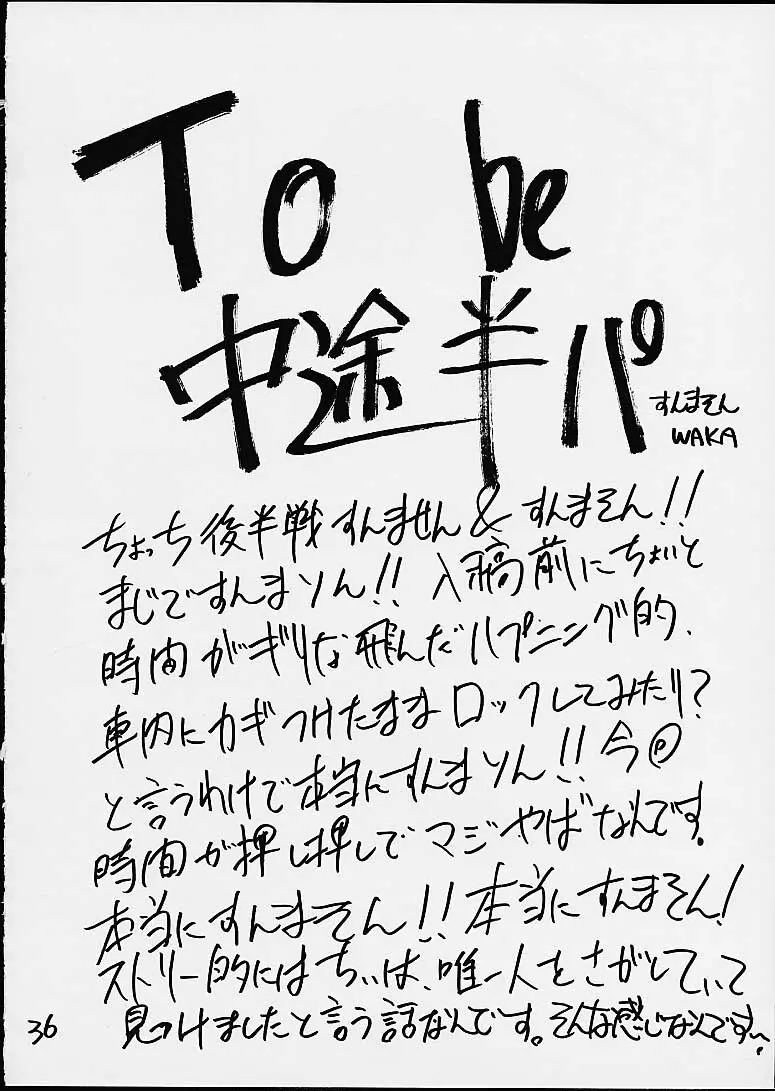 To be
中途半パ
すんまそん
WAKA
ちょっち後半戦すんません&すんまそん!!
まじですんまソん!! 入稿前にちょいと
時間がギリな飛んだハプニング的、
車内にカギつけたままロックしてみたり?
と言うわけで本当にすんまソん!! 今
時間が押し押しでマジやばなんです。
本当にすんまそん!! 本当にすんまそん!
ストーリー的にはちぃは、唯一人をさがしてぃて
見つけましたと言う話なんです。そんな感じなんです〜
36